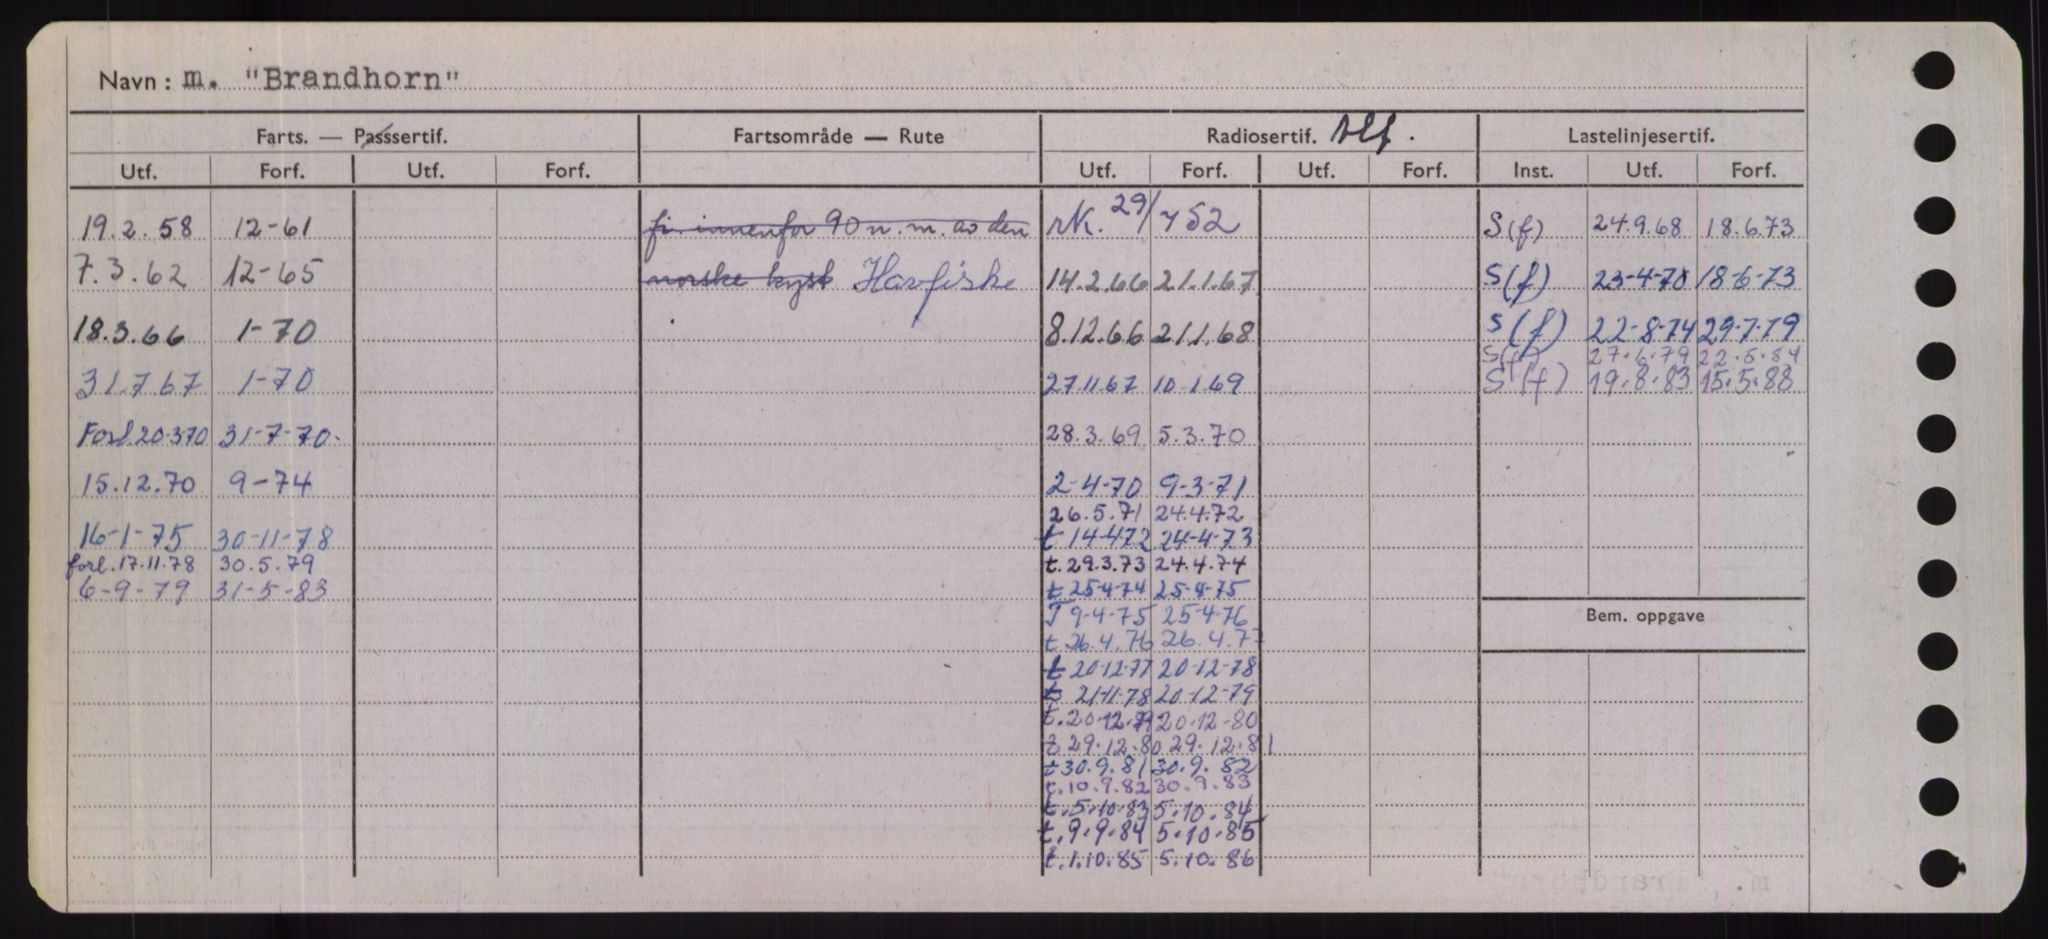 Navn: m. "Brandhorn"
Farts. — Passsertif. Fartsområde — Rute Radiosertif. tlf. Lastelinjesertif.
Utf. Forf. Utf. Forf. Utf. Forf. Utf. Forf. Inst. Utf. Forf.
19.2.58 12-61 fi. innenfor 90 n.m. av den rK. 29/7 52 S(f) 24.9.68 18.6.73
7.3.62 12-65 norske kyst Havfiske 14.2.66 21.1.67 S(f) 23-4-70 18-6-73
18.3.66 1-70 8.12.66 21.1.68 S(f) 22-8-74 29-7-79
S(f) 27.6.79 22.5.84
31.7.67 1-70 27.11.67 10.1.69 S(f) 19.8.83 15.5.88
Forl. 20.3.70 31-7-70. 28.3.69 5.3.70
15.12.70 9-74 2-4-70 9-3-71
26.5.71 24.4.72
16-1-75 30-11-78 t 14-4-72 24-4-73
forl. 17.11.78 30.5.79 t. 29.3.73 24.4.74
6-9-79 31-5-83 t 25-4-74 25-4-75
T 9-4-75 25-4-76 Bem. oppgave
t. 26.4.76 26.4.77
t 20-12-77 20-12-78
t 21-11-78 20-12-79
t. 20.12.79 20.12-80
t 29.12.80 29.12.81
t 30.9.81 30.9.82
t. 10.9.82 30.9.83
t. 5.10.83 5.10.84
t. 9.9.84 5.10.85
t. 1.10.85 5.10.86